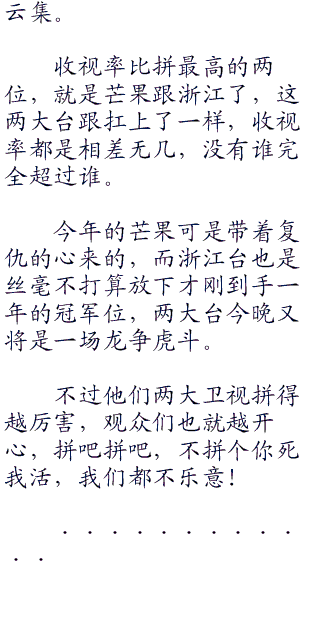 云集。
收视率比拼最高的两
位，就是芒果跟浙江了，这
两大台跟扛上了一样，收视
率都是相差无几，没有谁完
全超过谁。
今年的芒果可是带着复
仇的心来的，而浙江台也是
丝毫不打算放下才刚到手一
年的冠军位，两大台今晚又
将是一场龙争虎斗。
不过他们两大卫视拼得
越厉害，观众们也就越开
心，拼吧拼吧，不拼个你死
我活，我们都不乐意！
．．．．．．．．．．
．．